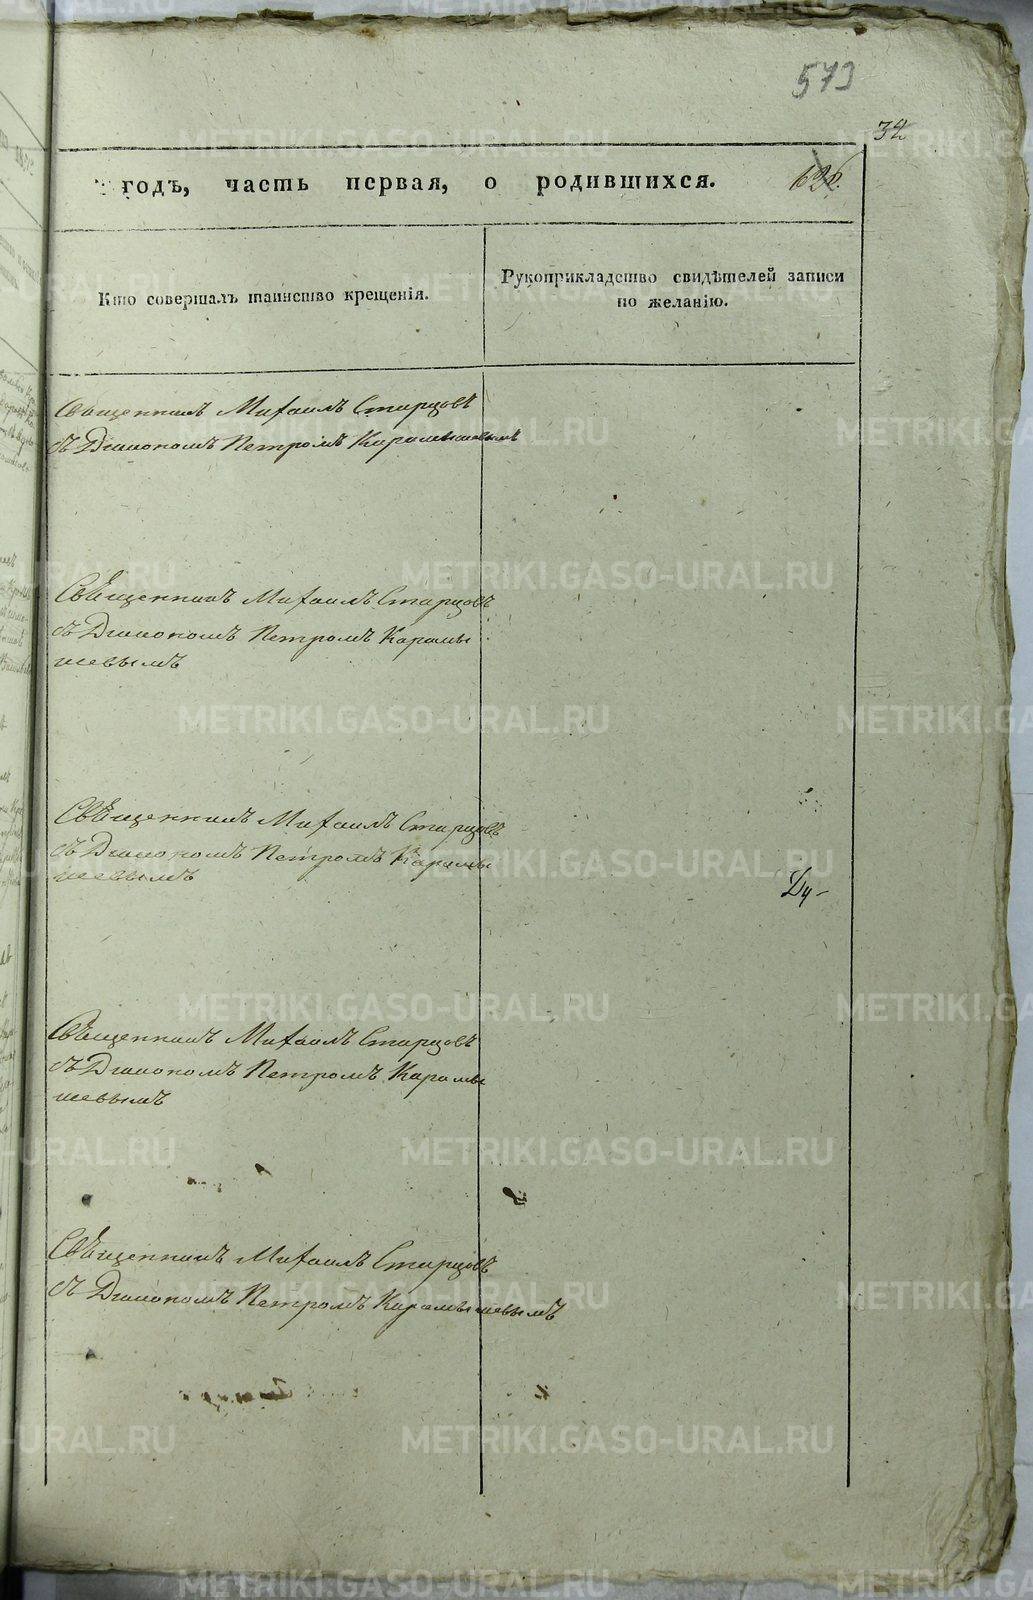 573
32
годъ, часть первая, о родившихся.
Кто совершалъ таинство крещенія.
Рукоприкладство свидѣтелей записи
по желанію.
Священникъ Михаилъ Старцовъ
съ Диакономъ Петромъ Карамышевымъ
Священникъ Михаилъ Старцовъ
съ Диакономъ Петромъ Карамы
шевымъ
Священникъ Михаилъ Старцовъ
съ Диакономъ Петромъ Карамы
шевымъ
Ду-
Священникъ Михаилъ Старцовъ
съ Диакономъ Петромъ Карамы
шевымъ
Священникъ Михаилъ Старцовъ
съ Диакономъ Петромъ Карамышевымъ
METRIKI.GASO-URAL.RU